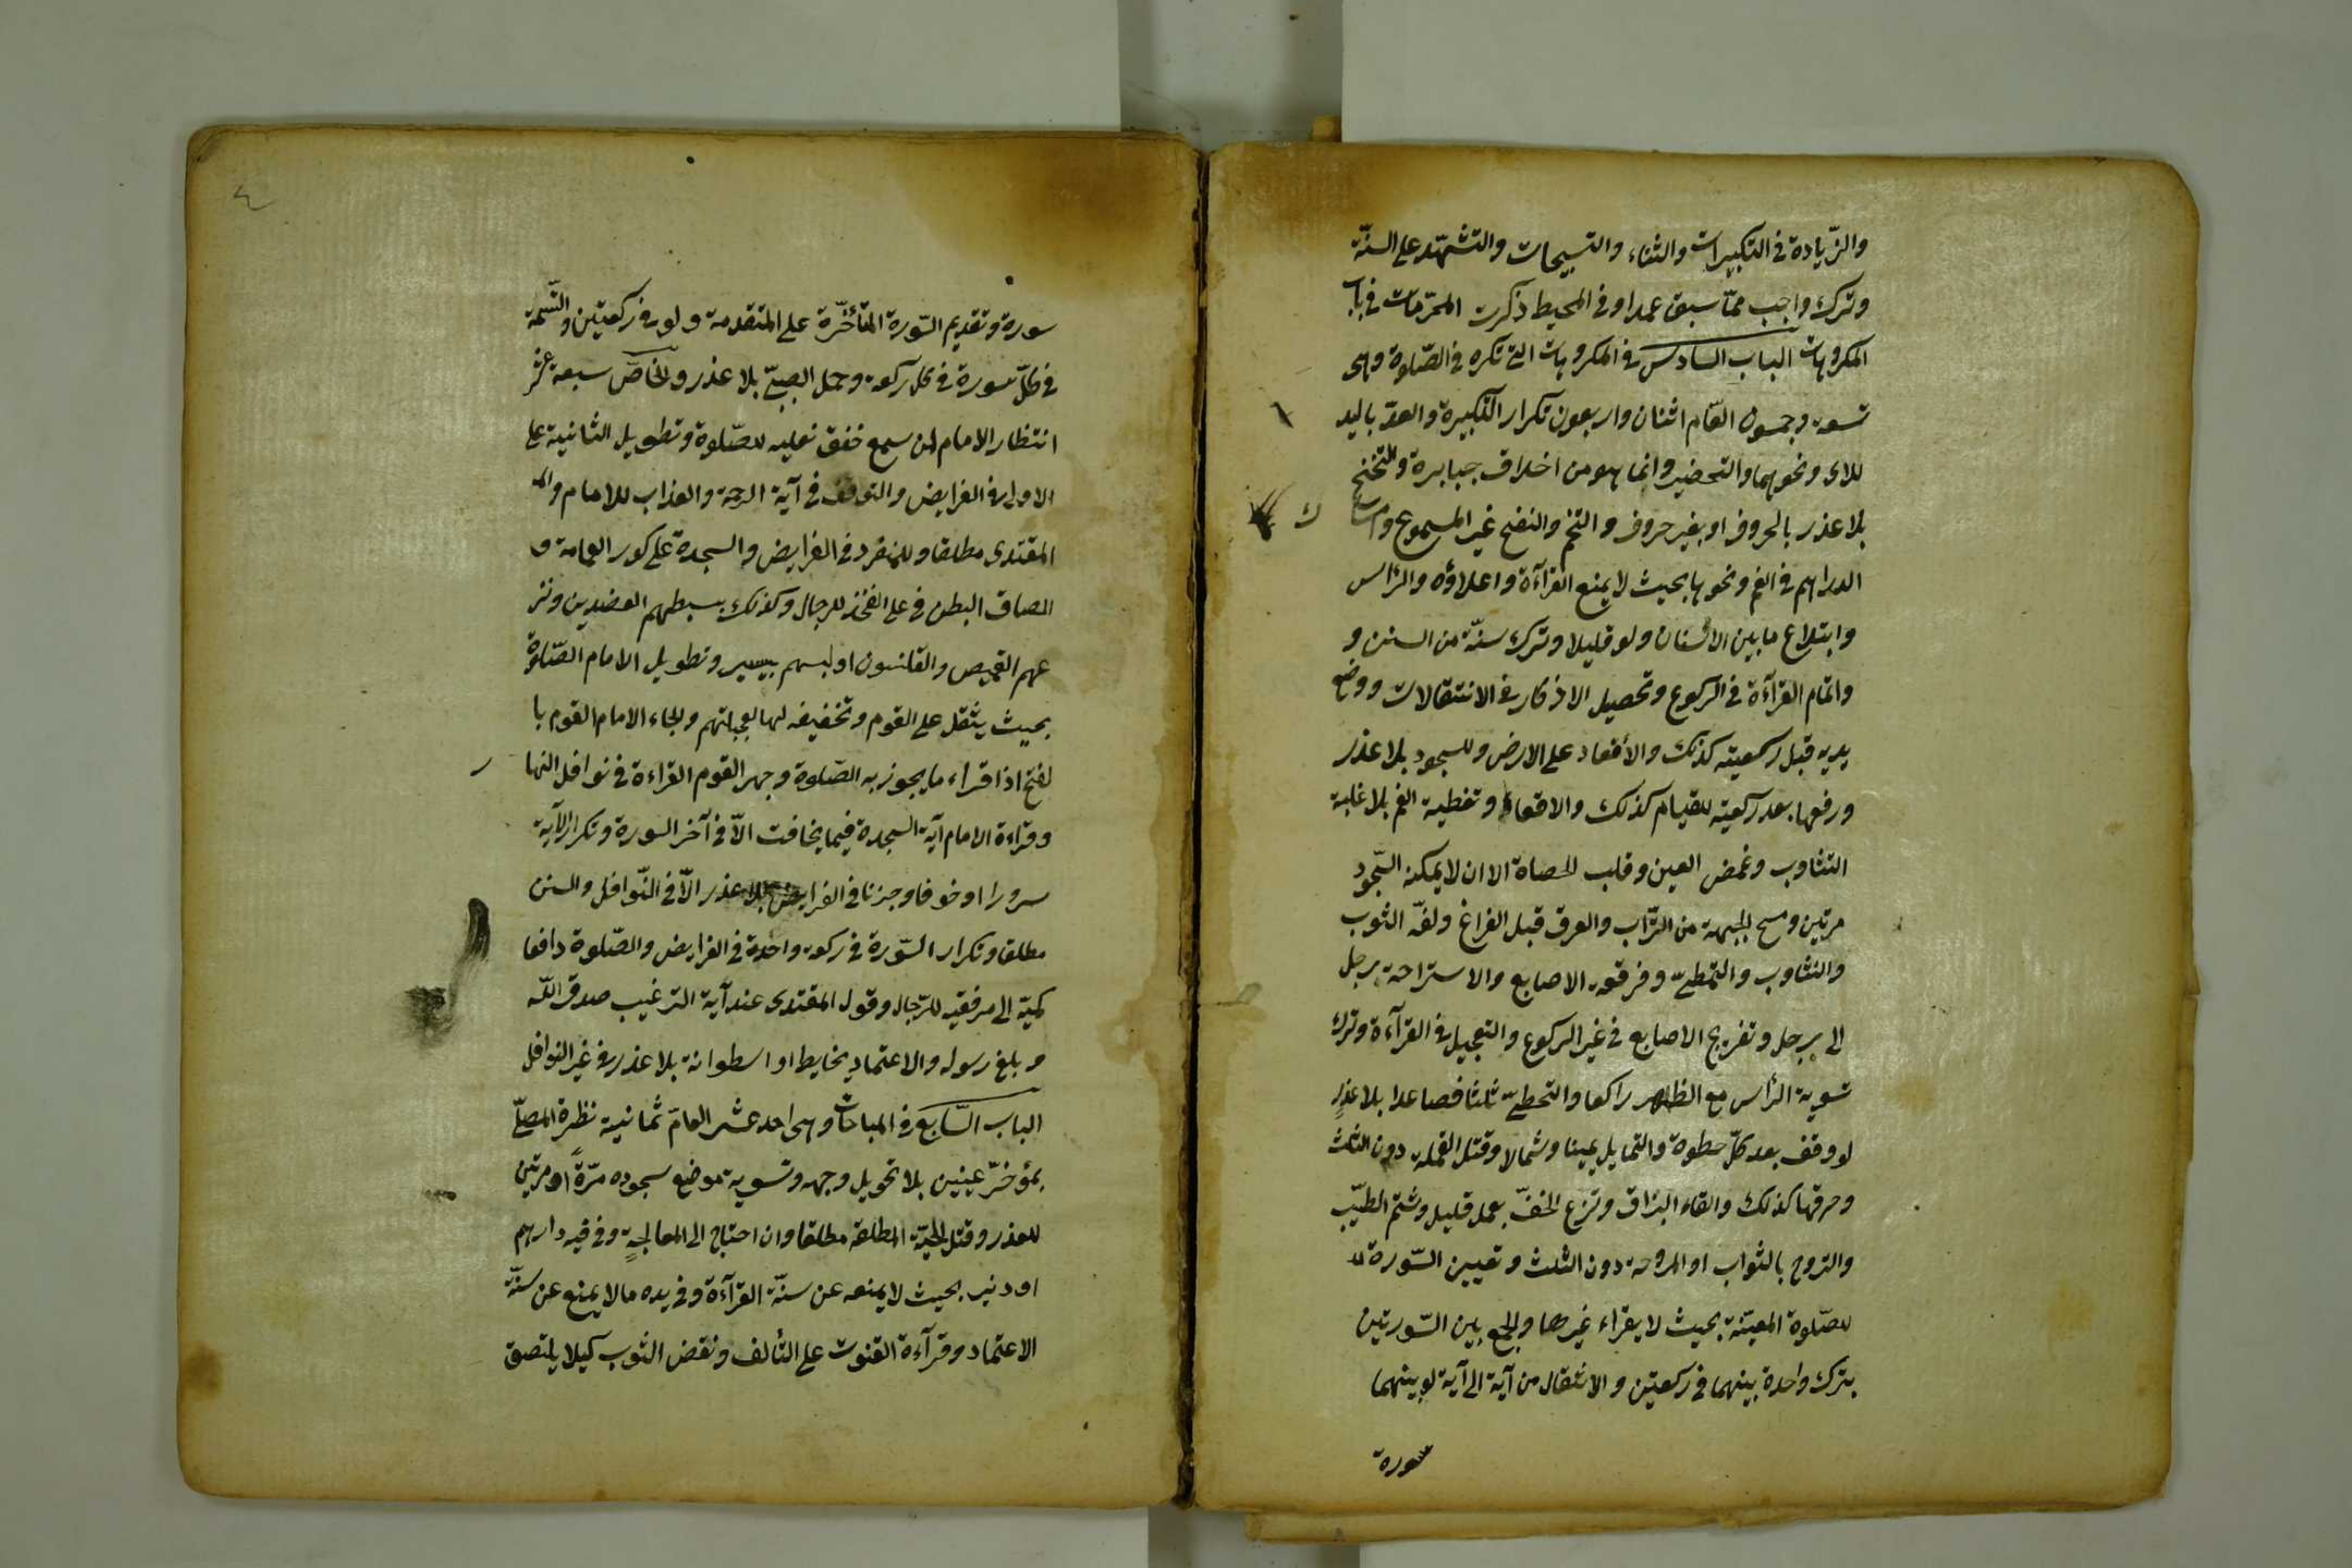 والزّيادة في التكبيرات والثناء والتسبيحات والتشهّد على السنّة
وترك واجب ممّا سبق عمدا وفي المحيط ذكرت المحرّمات في باب
المكروهات الباب السادس في المكروهات التي تكره في الصّلوة وهي
تسعة وخمسون العّام اثنان واربعون تكرار التكبيرة والعدّ باليد
للآى ونحوهما والتحضير وانما هو من اخلاق جبابرة والتنحنح
بلا عذر بالحروف او بغير حروف و التنخم والنفخ غير المسموع وامساك
الدراهم في الفم ونحوها بحيث لا يمنع القرآءة واعلاؤه والرّاس
وابتلاع ما بين الاسنان ولو قليلا وترك سنّة من السنن و
واتمام القرآءة في الركوع وتحصيل الاذكار في الانتقالات ووضع
يديه قبل ركبتيه كذلك والأقعاد على الارض وللسجود بلا عذر
ورفعها بعد ركبتيه للقيام كذلك والاقعاء وتغطية الفم بلا غلبة
التثاوب وغمض العين وقلب الحصاة الا ان لا يمكنه السّجود
مرتين ومسح الجبهة من التّراب والعرق قبل الفراغ ولفّ الثوب
والتثاوب والتمطىّ وفرقعة الاصابع والاستراحة برجل
الى برجل وتفريج الاصابع في غير الركوع والتعجيل في القرآءة وترك
تسوية الرّأس مع الظهر راكعا والتخطىّ ثلثا فصاعدا بلا عذرٍ
لو وقف بعد كلّ خطوة والتمايل يمينا وشمالا وقتل القملة دون الثلث
وحرقها كذلك والقاء البزاق ونزع الخفّ بعمل قليل وشتم الطيّب
والتروح بالثواب او المروحة دون الثلث وتعيين السّورة
للصّلوة المعيّنة بحيث لا يقراء غيرها والجمع بين السّورتين
بترك واحدة بينهما في ركعتين والانتقال من آية الى آية لو بينهما
سورة
سورة وتقديم السّورة المتأخّرة على المتقدمة ولو في ركعتين والتّسمية
في كلّ سورة في كل ركعة وحمل الصبىّ بلا عذر والخاصّ سبعة عشر
انتظار الامام لمن سمع خفق نعليه للصّلوة وتطويل الثانية على
الاولى في الفرايض والتوقف في آية الرحمة والعذاب للامام و
المقتدى مطلقا وللمنفرد في الفرايض والسجدة على كور العمامة و
الصاق البطن في على الفخذ للرجال وكذلك بسطهم العضدين ونز
عهم القميص والقلنسون او لبسهم بيسير وتطويل الامام الصّلوة
بحيث يثقل على القوم وتخفيفه لها لعجلتهم والجاء الامام القوم با
لفتح اذا قراء ما يجوز به الصّلوة وجهر القوم القراءة في نوافل النها
ر
وقراءة الامام آية السجدة فيما يخافت الاّ في آخر السورة وتكرار الآية
سرورا او خوفا وحزنا في الفرايض بلا عذر الاّ في النّوافل والسنن
مطلقا وتكرار السّورة في ركعة واحدة في الفرايض والصّلوة دافعا
كميّه الى مرفقيه للرّجال وقول المقتدى عند آية الترغيب صدق اللّه
وبلغ رسوله والاعتماد بحايط او اسطوانة بلا عذر في غير النوافل
الباب السّابع في المباحات وهى احد عشر العامّ ثمانية نظرة المصلّى
بمؤخّر عينين بلا تحويل وجهه وتسوية موضع سجوده مرّةً او مرتين
للعذر وقتل الحيّة المطلقة مطلقا وان احتاج الى المعالجةٍ وفي فيه دارهم
او دنير بحيث لا يمنعه عن سنّة القرآءة وفي يده مالا يمنع عن سنّة
الاعتماد وقرآءة القنوت على التألف ونفض الثوب كيلا يلتصق